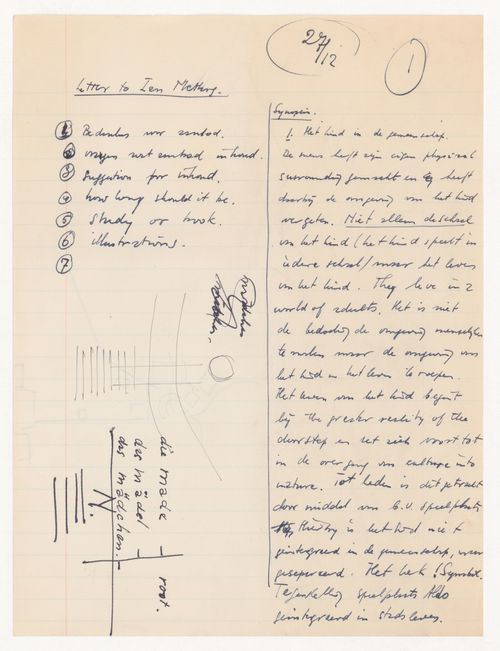 27/12
1
Letter to Ian
1 Bedanken voor aanbod.
2 vragen wat aanbod inhoud.
3 Suggestion for inhoud.
4 how long should it be.
5 study or book.
6 illustrations.
7
Synopsis.
1. Het kind in de gemeenschap.
De mens heeft zijn eigen physical
surrounding gemaakt en heeft
daarbij de omgeving van het kind
vergeten. Niet alleen de schaal
van het kind (het kind speelt in
iedere schaal) maar het leven
van het kind. They live in a
world of adults. Het is niet
de bedoeling de omgeving menselijker
te maken maar de omgeving van
het kind in het leven te roepen.
Het leven van het kind begint
bij the greater reality of the
doorstep en zet zich voort tot
in de overgang van culture into
nature. Tot heden is dit getracht
door middel van b.v. speelplaats
is het kind niet
geïntegreerd in de gemeenschap, maar
gesepereerd. Het hek! Symbol.
Tegenstelling speelplaats
geïntegreerd in stadsleven.
mädchen
die made
das mädel
das mädchen.
root.
N.